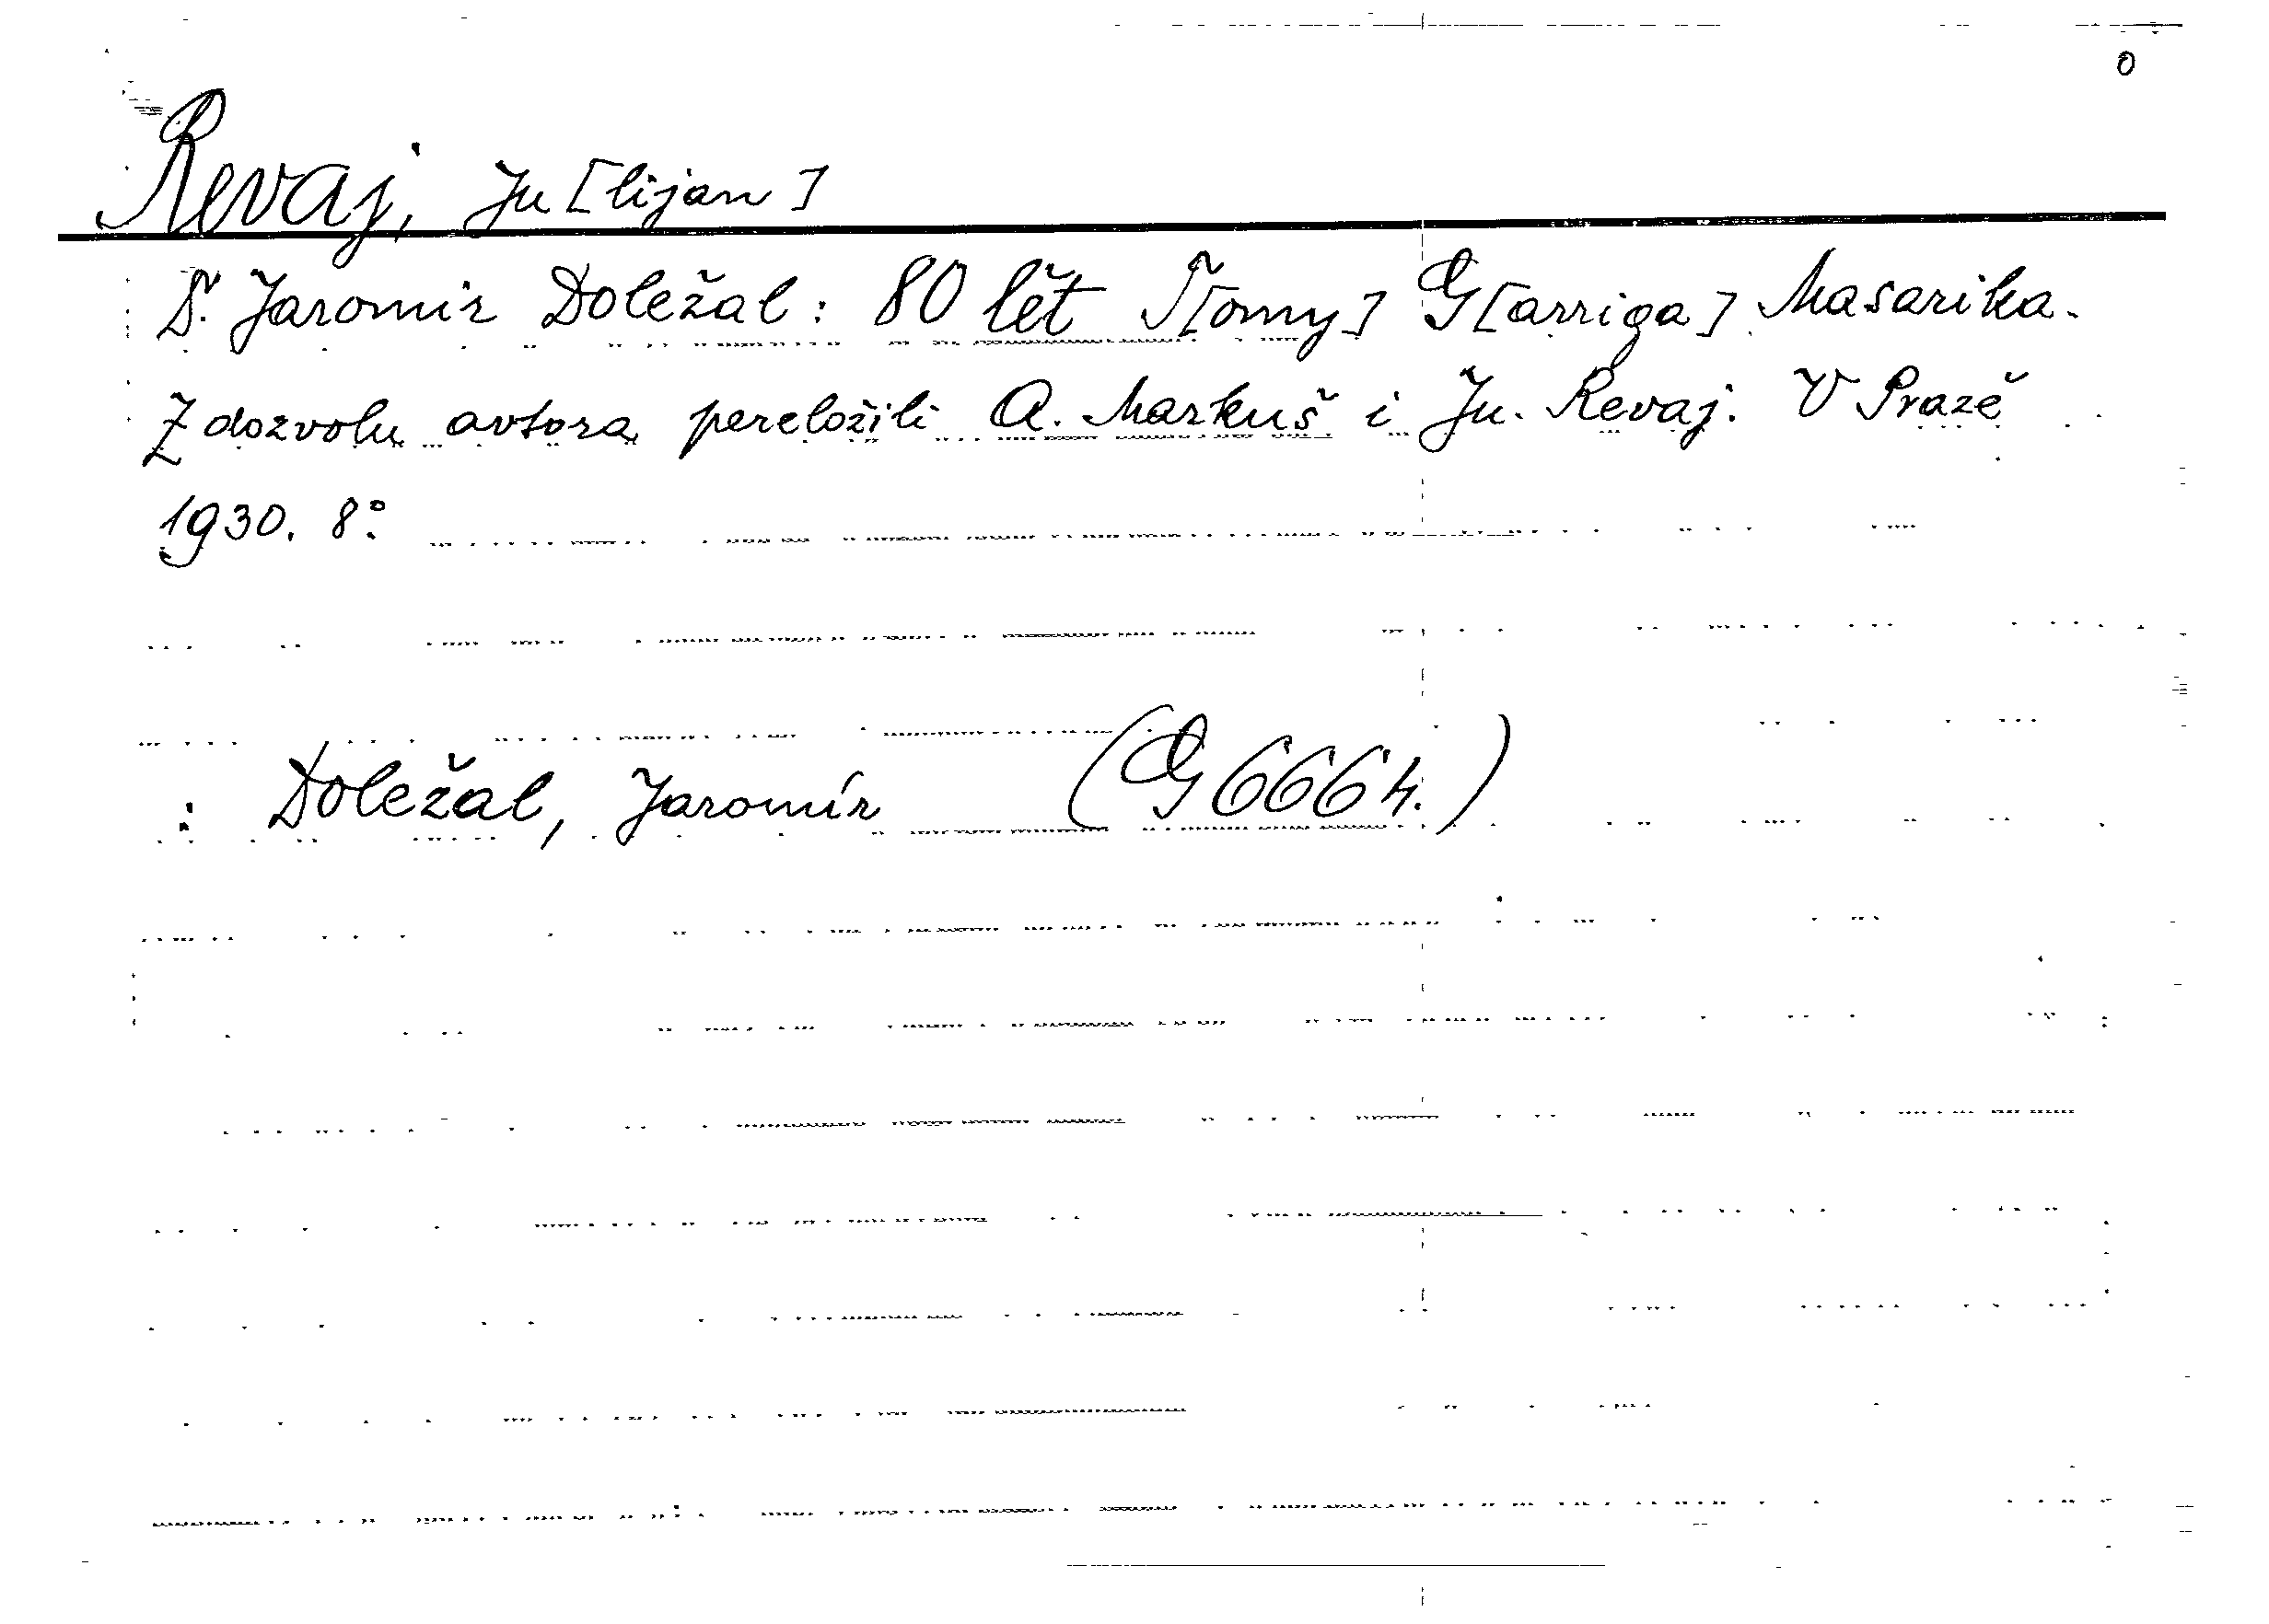 0
Revaj, Ju[lijan]
Dr. Jaromir Doležal: 80 lět T[omy] G[arriga] Masarika.
Z dozvolu avtora pereložili A. Markuš i Ju. Revaj. V Prazě
1930. 8°.
: Doležal, Jaromír (G 666 h.)